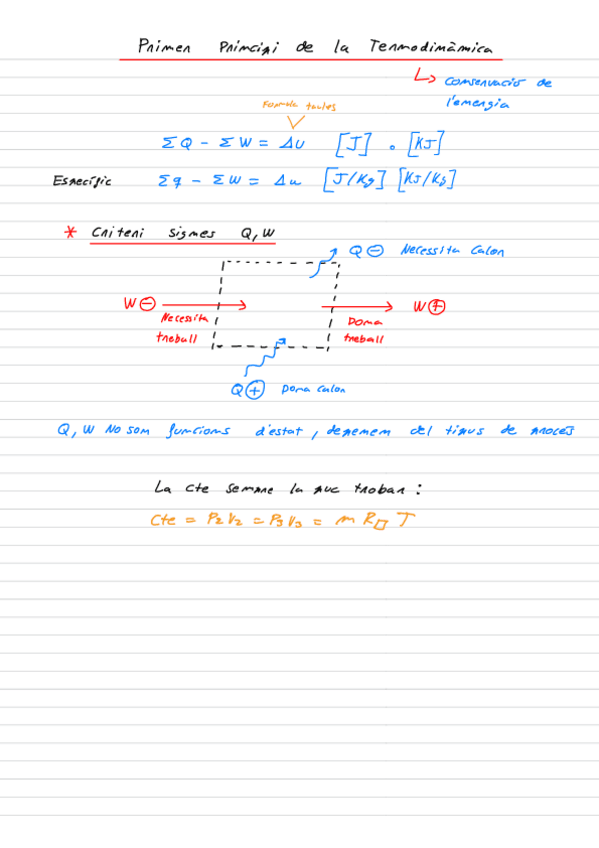 Primer Principi de la Termodinàmica
↳ Conservació de
l'energia
Formula taules
ΣQ - ΣW = Δu [J] o [KJ]
Específic Σq - ΣW = Δu [J/Kg] [KJ/Kg]
* Criteri signes Q, W
Q ⊖ Necessita Calor
W ⊖ W ⊕
Necessita Dona
treball treball
Q ⊕ Dona Calor
Q, W No son funcions d'estat, depenem del tipus de procés
La cte sempre la puc trobar:
Cte = P₂V₂ = P₃V₃ = m R▯ T